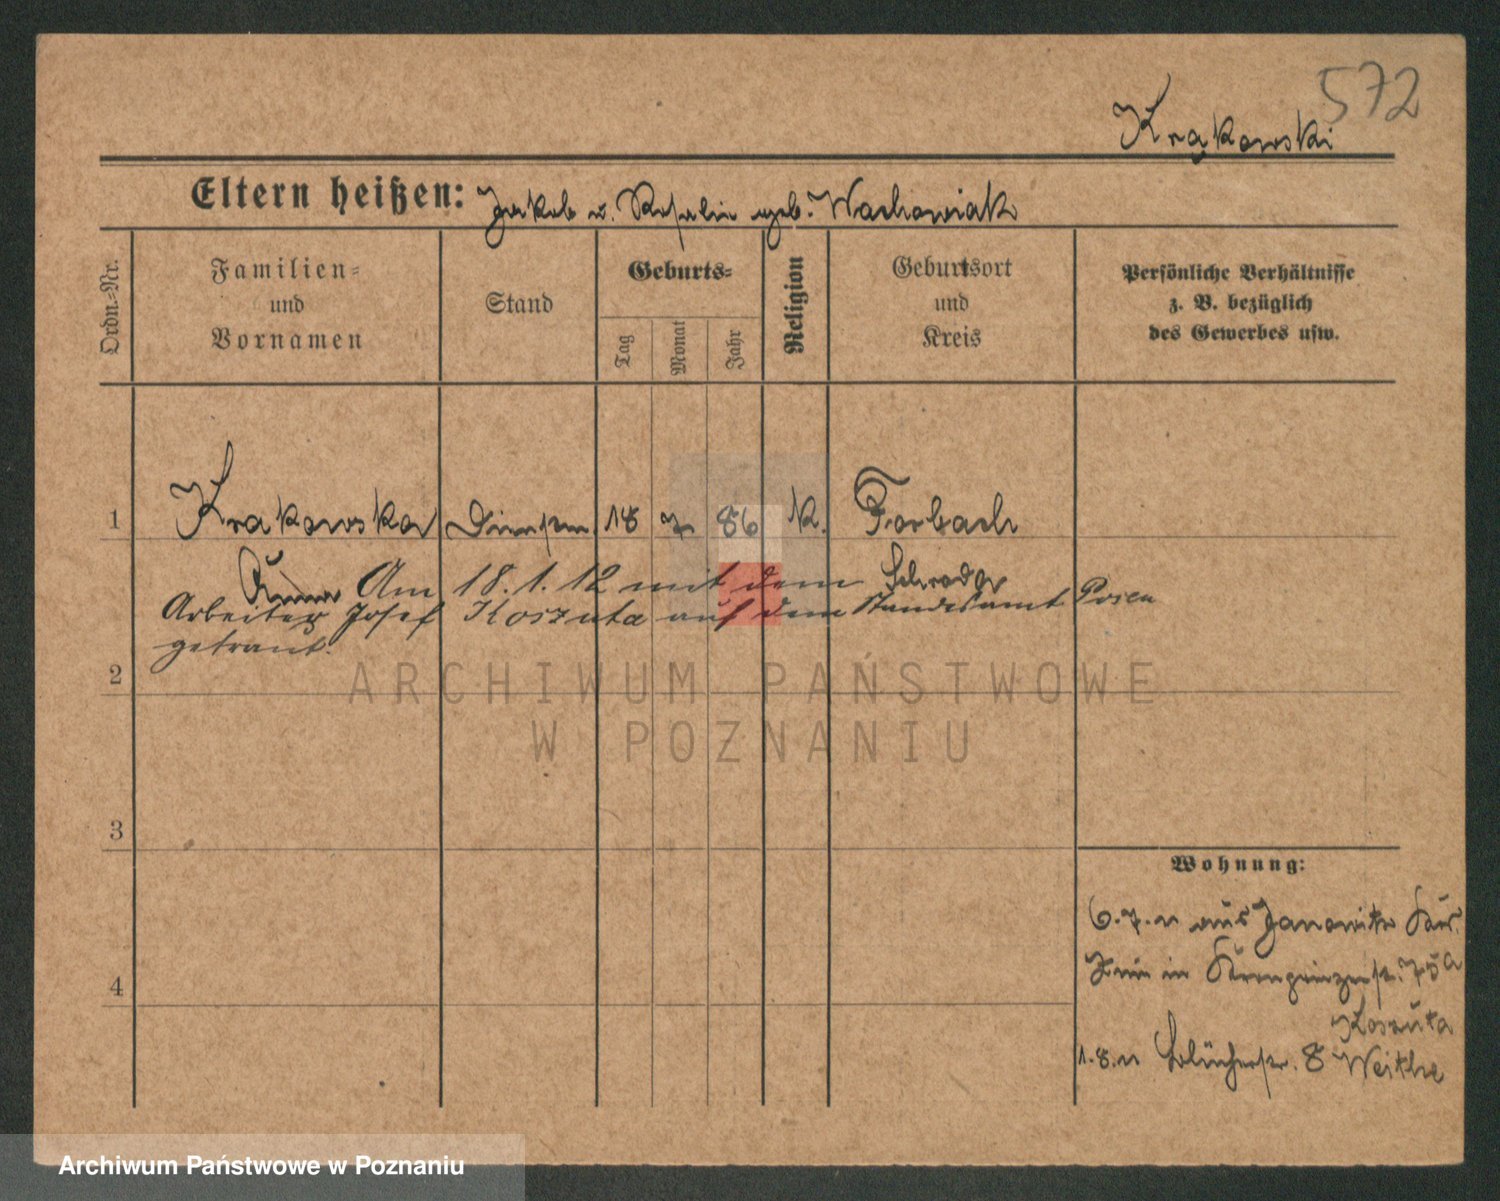 572
Krakowski
Eltern heißen: Jakob u. Rosalie geb. Wachowiak
Ordn.-Nr.
Familien-
und
Vornamen
Stand
Geburts-
Tag
Monat
Jahr
Religion
Geburtsort
und
Kreis
Persönliche Verhältnisse
z. B. bezüglich
des Gewerbes usw.
1 Krakowska 18 7 86 K. Forbach
Anna Am 18.1.12 mit dem Schroda
Arbeiter Josef Koszuta auf dem Standesamt Posen
getraut.
2
ARCHIWUM PAŃSTWOWE
W POZNANIU
3
Wohnung:
6.7.11 aus Janowitz Krs.
4
Znin in Kronprinzenstr. 75a
Koszuta
1.8.11 Blücherstr. 8
Archiwum Państwowe w Poznaniu